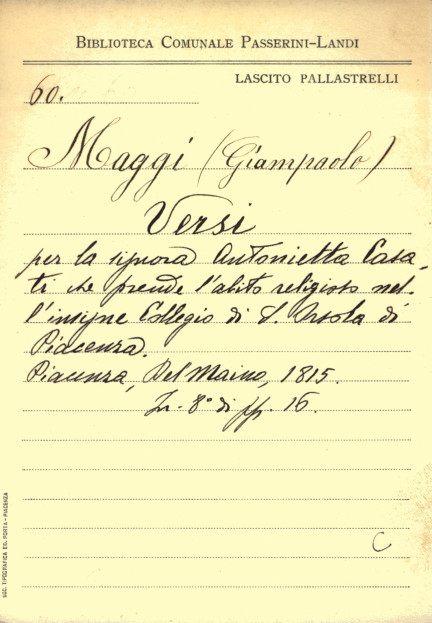 BIBLIOTECA COMUNALE PASSERINI-LANDI
LASCITO PALLASTRELLI
60.
Maggi (Giampaolo)
Versi
per la signora Antonietta Casa-
ti che prende l'abito religioso nel-
l'insigne Collegio di S. Orsola di
Piacenza.
Piacenza, Del Maino, 1815.
In-8° di pp. 16.
C
SOC. TIPOGRAFICA ED. PORTA - PIACENZA